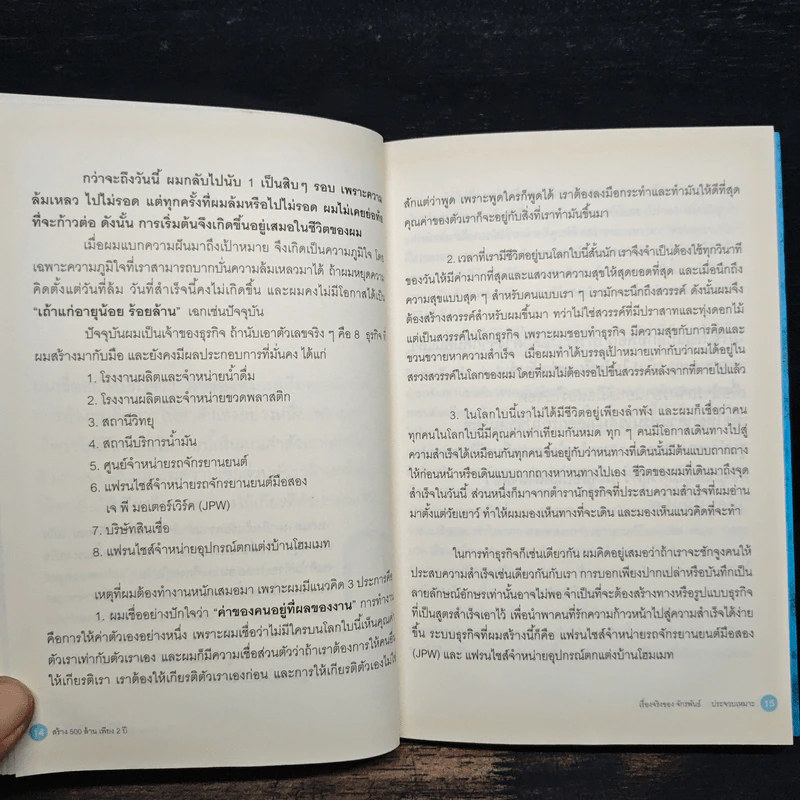 กว่าจะถึงวันนี้ ผมกลับไปนับ 1 เป็นสิบๆ รอบ เพราะความ
ล้มเหลว ไปไม่รอด แต่ทุกครั้งที่ผมล้มหรือไปไม่รอด ผมไม่เคยย่อท้อ
ที่จะก้าวต่อ ดังนั้น การเริ่มต้นจึงเกิดขึ้นอยู่เสมอในชีวิตของผม
เมื่อผมแบกความฝันมาถึงเป้าหมาย จึงเกิดเป็นความภูมิใจ โดย
เฉพาะความภูมิใจที่เราสามารถบากบั่นความล้มเหลวมาได้ ถ้าผมหยุดความ
คิดตั้งแต่วันที่ล้ม วันที่สำเร็จนี้คงไม่เกิดขึ้น และผมคงไม่มีโอกาสได้เป็น
"เถ้าแก่อายุน้อย ร้อยล้าน" เฉกเช่นปัจจุบัน
ปัจจุบันผมเป็นเจ้าของธุรกิจ ถ้านับเอาตัวเลขจริง ๆ คือ 8 ธุรกิจ ที่
ผมสร้างมากับมือ และยังคงมีผลประกอบการที่มั่นคง ได้แก่
1. โรงงานผลิตและจำหน่ายน้ำดื่ม
2. โรงงานผลิตและจำหน่ายขวดพลาสติก
3. สถานีวิทยุ
4. สถานีบริการน้ำมัน
5. ศูนย์จำหน่ายรถจักรยานยนต์
6. แฟรนไชส์จำหน่ายรถจักรยานยนต์มือสอง
เจ พี มอเตอร์เวิร์ค (JPW)
7. บริษัทสินเชื่อ
8. แฟรนไชส์จำหน่ายอุปกรณ์ตกแต่งบ้านโฮมเมท
เหตุที่ผมต้องทำงานหนักเสมอมา เพราะผมมีแนวคิด 3 ประการคือ
1. ผมเชื่ออย่างปักใจว่า "ค่าของคนอยู่ที่ผลของงาน" การทำงาน
คือการให้ค่าตัวเองอย่างหนึ่ง เพราะผมเชื่อว่าไม่มีใครบนโลกใบนี้เห็นคุณค่า
ตัวเราเท่ากับตัวเราเอง และผมก็มีความเชื่อส่วนตัวว่าถ้าเราต้องการให้คนอื่น
ให้เกียรติเรา เราต้องให้เกียรติตัวเราเองก่อน และการให้เกียรติตัวเองไม่ใช่
14 สร้าง 500 ล้าน เพียง 2 ปี
สักแต่ว่าพูด เพราะพูดใครก็พูดได้ เราต้องลงมือกระทำและทำมันให้ดีที่สุด
คุณค่าของตัวเราก็จะอยู่กับสิ่งที่เราทำมันขึ้นมา
2. เวลาที่เรามีชีวิตอยู่บนโลกใบนี้สั้นนัก เราจึงจำเป็นต้องใช้ทุกวินาที
ของวันให้มีค่ามากที่สุดและแสวงหาความสุขให้สุดยอดที่สุด และเมื่อนึกถึง
ความสุขแบบสุด ๆ สำหรับคนแบบเรา ๆ เรามักจะนึกถึงสวรรค์ ดังนั้นผมจึง
ต้องสร้างสวรรค์สำหรับผมขึ้นมา ทว่าไม่ใช่สวรรค์ที่มีปราสาทและทุ่งดอกไม้
แต่เป็นสวรรค์ในโลกธุรกิจ เพราะผมชอบทำธุรกิจ มีความสุขกับการคิดและ
ขวนขวายหาความสำเร็จ เมื่อผมทำได้บรรลุเป้าหมายเท่ากับว่าผมได้อยู่ใน
สรวงสวรรค์ในโลกของผม โดยที่ผมไม่ต้องรอไปขึ้นสวรรค์หลังจากที่ตายไปแล้ว
3. ในโลกใบนี้เราไม่ได้มีชีวิตอยู่เพียงลำพัง และผมก็เชื่อว่าคน
ทุกคนในโลกใบนี้มีคุณค่าเท่าเทียมกันหมด ทุก ๆ คนมีโอกาสเดินทางไปสู่
ความสำเร็จได้เหมือนกันทุกคน ขึ้นอยู่กับว่าหนทางที่เดินนั้นมีต้นแบบถากถาง
ให้ก่อนหน้าหรือเดินแบบถากถางหาหนทางไปเอง ชีวิตของผมที่เดินมาถึงจุด
สำเร็จในวันนี้ ส่วนหนึ่งก็มาจากตำรานักธุรกิจที่ประสบความสำเร็จที่ผมอ่าน
มาตั้งแต่วัยเยาว์ ทำให้ผมมองเห็นทางที่จะเดิน และมองเห็นแนวคิดที่จะทำ
ในการทำธุรกิจก็เช่นเดียวกัน ผมคิดอยู่เสมอว่าถ้าเราจะชักจูงคนให้
ประสบความสำเร็จเช่นเดียวกันกับเรา การบอกเพียงปากเปล่าหรือบันทึกเป็น
ลายลักษณ์อักษรเท่านั้นอาจไม่พอ จำเป็นที่จะต้องสร้างทางหรือรูปแบบธุรกิจ
ที่เป็นสูตรสำเร็จเอาไว้ เพื่อนำพาคนที่รักความก้าวหน้าไปสู่ความสำเร็จได้ง่าย
ขึ้น ระบบธุรกิจที่ผมสร้างนี้ก็คือ แฟรนไชส์จำหน่ายรถจักรยานยนต์มือสอง
(JPW) และ แฟรนไชส์จำหน่ายอุปกรณ์ตกแต่งบ้านโฮมเมท
เรื่องจริงของ จักรพันธ์ ประจวบเหมาะ 15